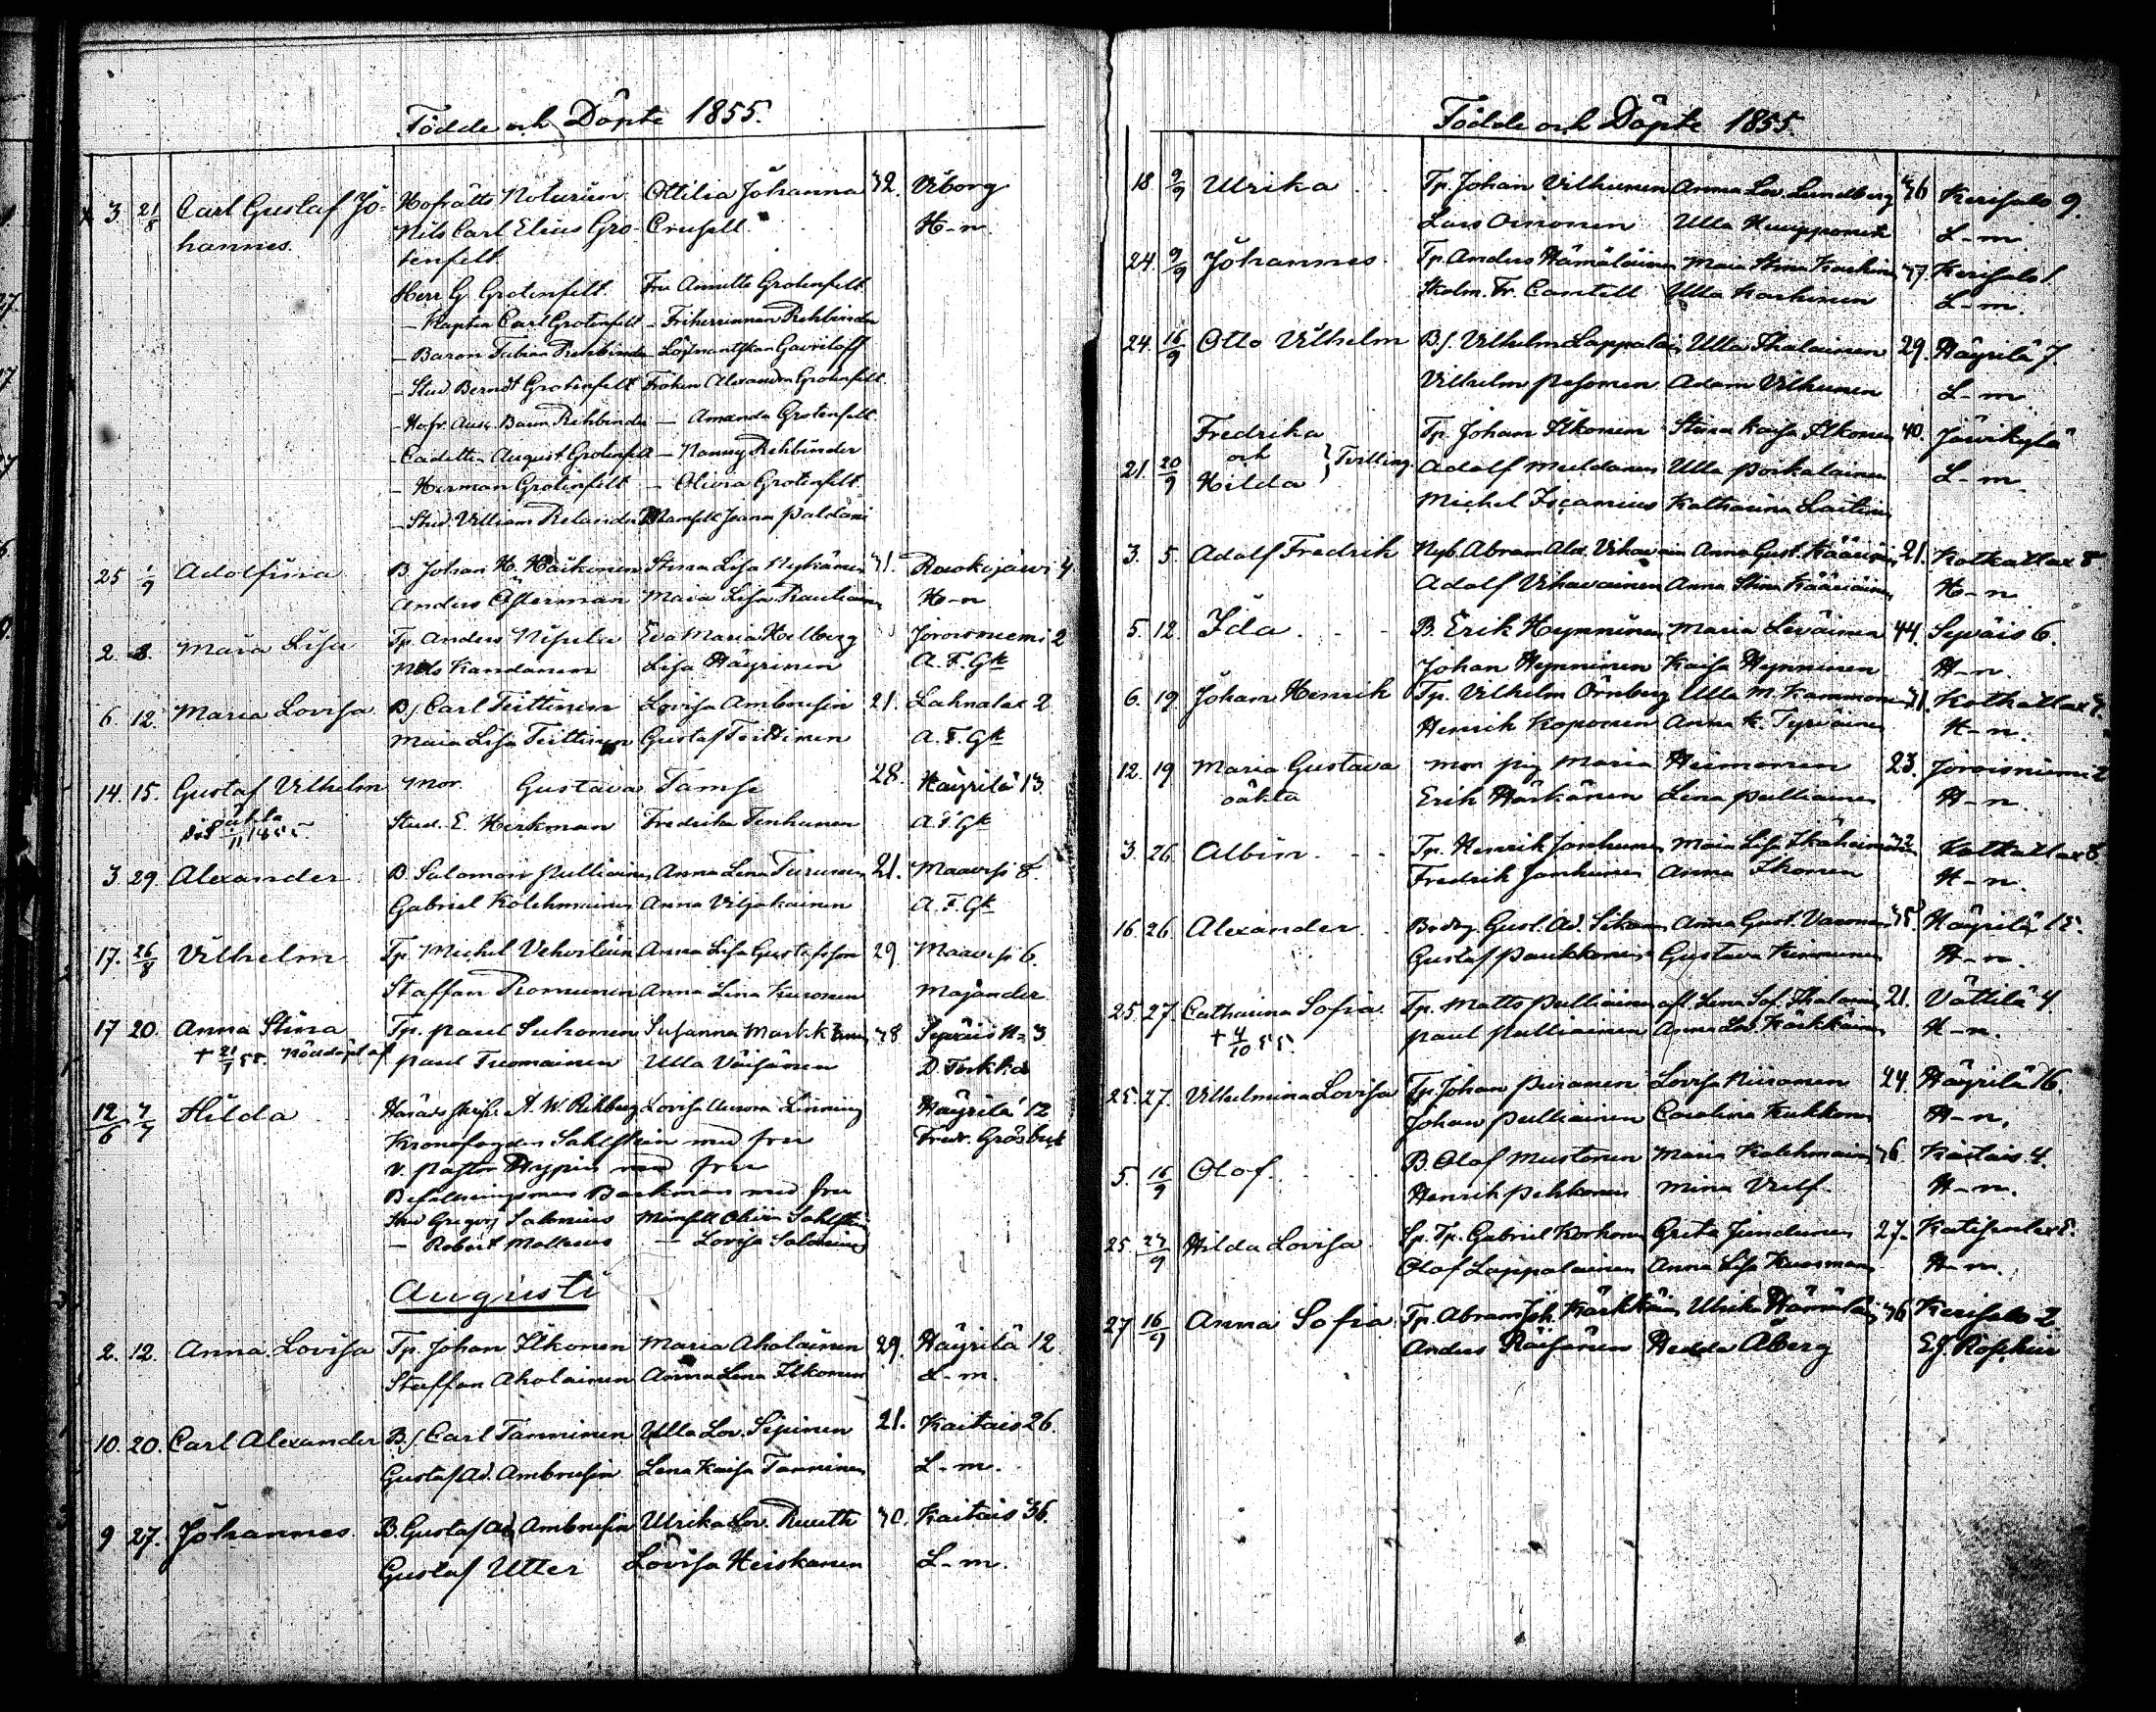 Födde och Döpte 1855.
x 3. 21/8 Carl Gustaf Jo- Hofrätts Notarien Ottilia Johanna 32. Viborg
hannes. Nils Carl Elius Gro- Crusell. H-n
tenfelt
Herr G. Grotenfelt. Fru Annette Grotenfelt
- Kapten Carl Grotenfelt - Friherrinnan Rehbinder
- Baron Fabian Rehbinder - Löjtnantskan Gavriloff
- Stud. Berndt Grotenfelt Fröken Alexandra Grotenfelt.
- Hofr. Ausc. Baron Rehbinder - Amanda Grotenfelt
- Cadetten August Grotenfelt - Nanny Rehbinder
- Herman Grotenfelt - Olivia Grotenfelt
- Stud. William Relander Mamsell Joana Paldani
25 1/9 Adolfina B. Johan H. Häikönen Stina Lisa Nykänen 31. Ruokojärvi 4
Anders Åsterman Maia Lisa Rautiainen H-n
2. 8. Maria Lisa Tp. Anders Nisula Eva Maria Hollberg Joroisniemi 2
Nils Kandanen Lisa Häyrinen A. F. Gk
6. 12. Maria Lovisa Bs Carl Teittinen Lovisa Ambrusin 21. Lahnalax 2
Maia Lisa Teittinen Gustaf Teittinen A. F. Gk
14. 15. Gustaf Vilhelm Mor. Gustava Tamse 28. Häyrilä 13.
oäkta Stud. E. Hirkman Fredrika Tenhunen A. F. Gk
3 29. Alexander B. Salomon Pulliainen Anna Lena Turunen 21. Maavesi 8
Gabriel Kolehmainen Anna Viljakainen A. F. Gk
17. 26/8 Vilhelm Tp. Michel Vehviläin Anna Lisa Gustafsson 29. Maavesi 6.
Staffan Romunen Anna Lena Kuronen Majander
17 20. Anna Stina Tp. Paul Suhonen Susanna Mart. 38 Sysväis N=3
+ 21/7 55. Nöddöpt af Paul Tuomainen Ulla Väisänen D. Torkko
12/6 7/7 Hilda Härads A. W. Rehberg Lovisa Aurora Linning Häyrilä 12
Kronofogden Sahlstein med fru Fredr. Gråsbeck
v. Pastor Hypin med fru
Befallningsman Backman med fru
Stud Gregorj Salonius Mamsell Olivia Sahlstein
- Robert Mollerus - Lovisa Salonius
Augusti
2. 12. Anna Lovisa Tp. Johan Ilkonen Maria Aholainen 29. Häyrilä 12
Staffan Aholainen Anna Lena Ilkonen L-m.
10. 20. Carl Alexander Bs Carl Tanninen Ulla Lov. Sipinen 21. Kaitais 26.
Gustaf Ad. Ambrusin Lena Kaisa Tanninen L-m.
9 27. Johannes. B. Gustaf Ad Ambrusin Ulrika Lov. Reuth 30. Kaitais 36.
Gustaf Utter Lovisa Heiskanen L-m.
Födde och Döpte 1855.
18 9/9 Ulrika Tp. Johan Vilhunen Anna Lov. Lundberg 36 Kerisalo 9.
Lars Oinonen Ulla L-m.
24. 9/9 Johannes. Tp. Anders Hämäläinen Maia Stina Koskinen 37. Kerisalo 1.
Skolm. Fr. Castell Ulla Koskinen L-m.
24. 16/9 Otto Vilhelm Bs. Vilhelm Lappalain Ulla Ihalainen 29. Häyrilä 7.
Vilhelm Pesonen Adam Vilhunen L-m
Fredrika Tp. Johan Ilkonen Stina Kaisa Ilkonen 40. Järvikylä
21. 20/9 och } Tvilling. Adolf Muldanen Ulla Poikalainen L-m.
Hilda Michel Iscanius Katharina Laitinen
3. 5. Adolf Fredrik Nyb. Abram Alex. Vihavain Anna Gust. Kääriäin 21. Kotkatlax 8
Adolf Vihavainen Anna Stina Kääriäinen H-n.
5. 12. Ida. B. Erik Hynninen Maria Leväinen 44. Sysväis 6.
Johan Hynninen Kaisa Hynninen H-n.
6. 19. Johan Henrik Tp. Vilhelm Örnberg Ulla M. Kammonen 31. Kotkatlax
Henrik Koponen Anna K. Tyrväinen H-n.
12. 19 Maria Gustava Mor pig Maria Heimonen 23. Joroisniemi 2
oäkta Erik Härkönen Lena Pulliainen H-n.
3. 26. Albin. Tp. Henrik Janhunen Maia Lisa Ikäheimonen 32 Kotkatlax 8
Fredrik Janhunen Anna Ikonen H-n.
16. 26. Alexander. Gust. Ad. Sikan Anna Gust. Vasonen 35. Häyrilä 15.
Gustaf Paukkonen Gustava Kinnunen H-n.
25. 27. Catharina Sofia. Tp. Matts Pulliainen afl. Lena Sof. Ihalain 21. Vättilä 4
+ 4/10 55. Paul Pulliainen Anna Lov. Kärkkäinen H-n.
25. 27. Vilhelmina Lovisa Tp. Johan Piiranen Lovisa Niiranen 24. Häyrilä 16.
Johan Pulliainen Carolina Kukkonen H-n.
5. 16/9 Olof. B. Olof Mustonen Maria Kolehmain 36. Kaitais 4.
Henrik Pekkonen Mina Vulf. H-n.
25. 27/9 Hilda Lovisa. Sp. Tp. Gabriel Korhonen Greta Jundunen 27. Katisalax 5.
Olof Lappalainen Anna Lisa Kuosmanen H-n.
27 16/9 Anna Sofia Tp. Abram Joh. Kärkkäin Ulrika Hämäläin 36 Kerisalo 2.
Anders Räisänen Hedda Åberg